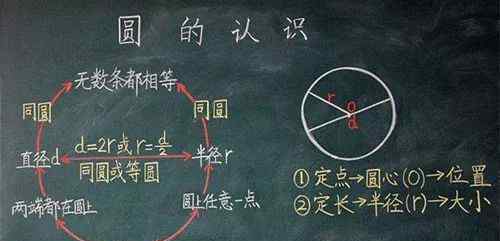 圆的认识
无数条都相等
同圆
同圆
r
o
d
直径d
d=2r或r=d/2
半径r
同圆或等圆
①定点→圆心(O)→位置
两端都在圆上
圆上任意一点
②定长→半径(r)→大小